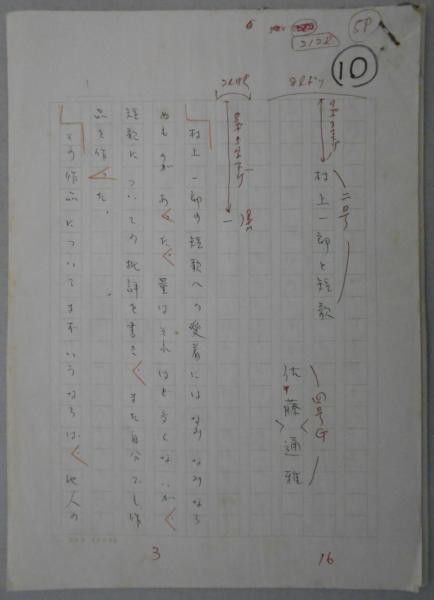 5P
10
村上一郎と短歌
二号
佐藤通雅
四号G
一
村上一郎の短歌への愛着にはなみなみなら
ぬものがあった。量はそれほど多くないが、
短歌についての批評を書き、また自分でも作
品を作った。
その作品についてまずいうならば、他人の
3
16